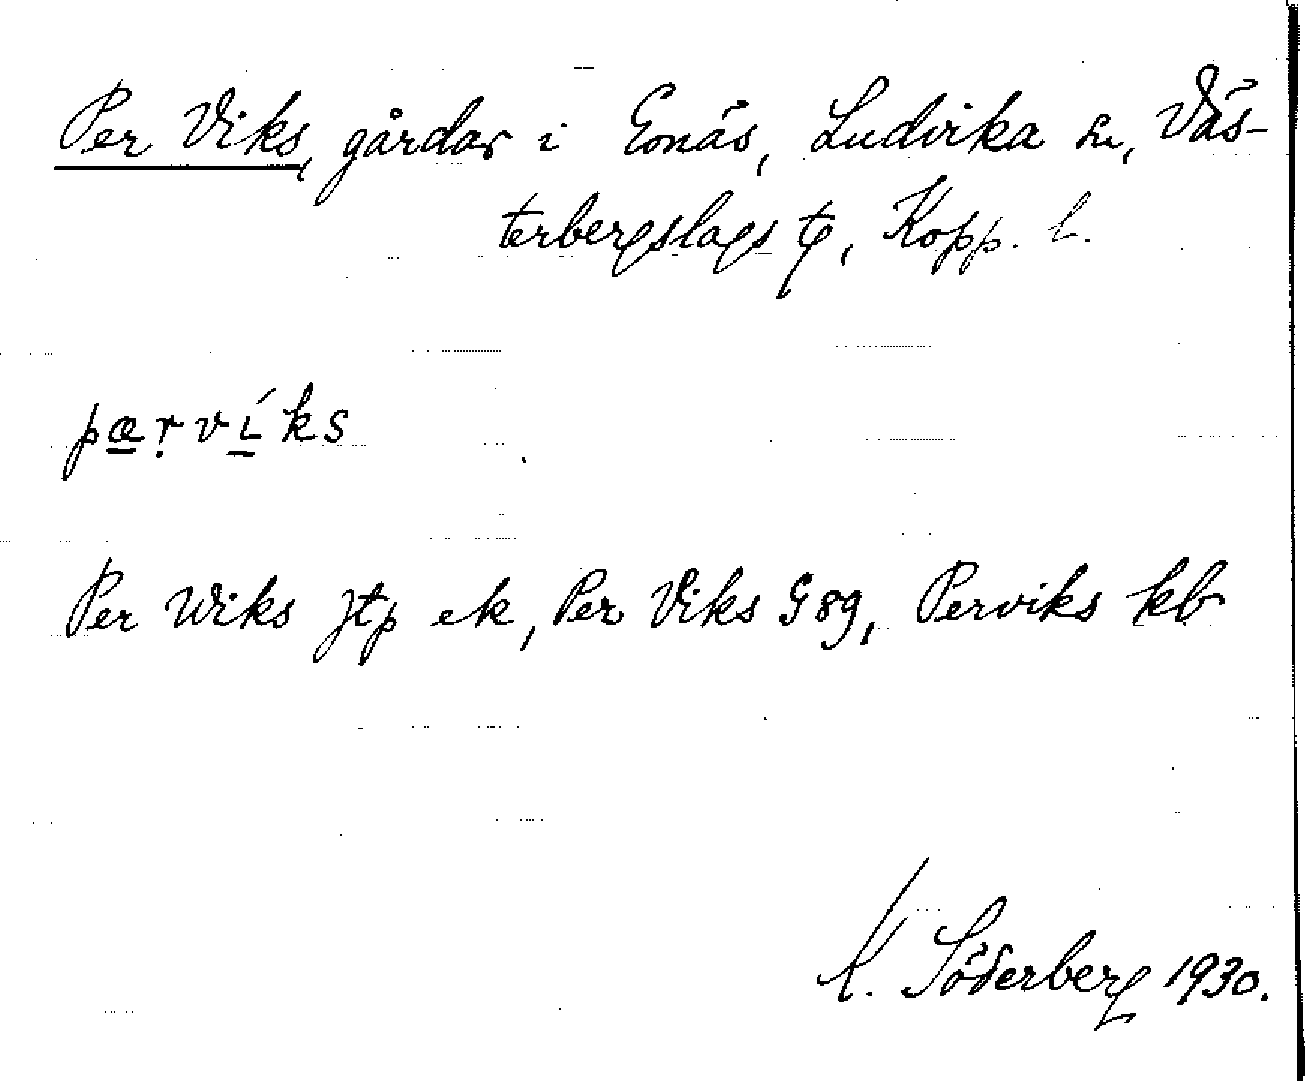 Per Viks, gårdar i Enäs, Ludvika sn, Väs-
terbergslags tg, Kopp. l.
pærvíks
Per Wiks jtp ek, Per Viks G 89, Perviks kb
K. Söderberg 1930.